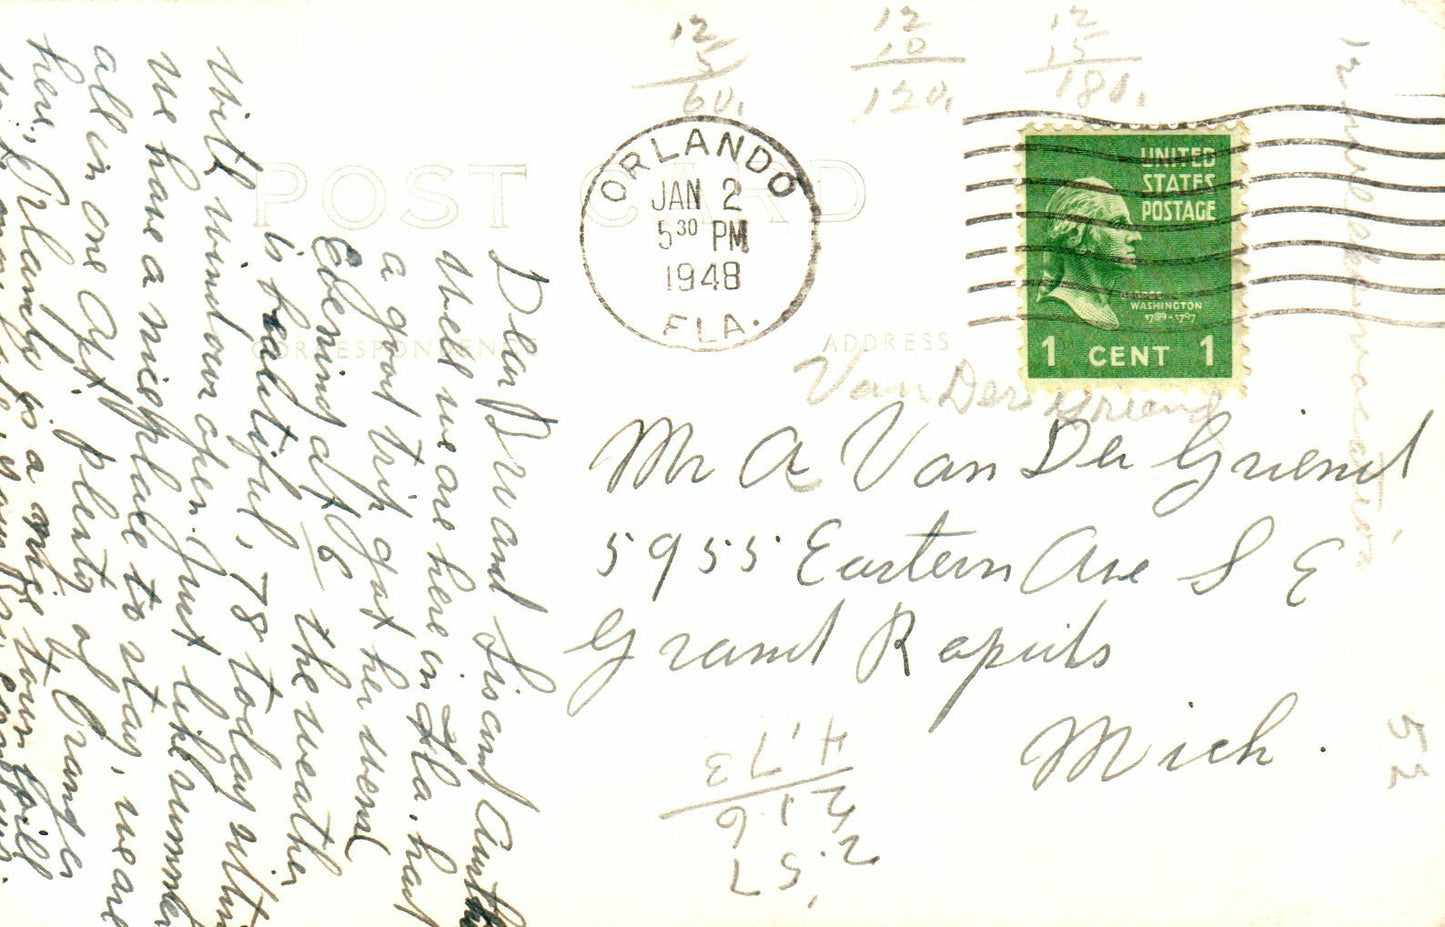 12
5
60.
12
10
120.
12
15
180.
POST CARD
ORLANDO
JAN 2
5 30 PM
1948
FLA.
UNITED
STATES
POSTAGE
GEORGE
WASHINGTON
1789-1797
1 CENT 1
CORRESPONDENCE
ADDRESS
Van Der Griend
Mr A Van Der Griend
5955 Eastern Ave S E
Grand Rapids
Mich.
Dear and Sis and Aunt
Well we are here in Fla, had
a good trip got here wend
Evening at 6 the weather
is beautiful, 78 today sitting
with windows open. Just like summer
we have a nice place to stay, we are
all in one apt plenty of
here, Orlando is a nice town
52
.57
2.16
4.73